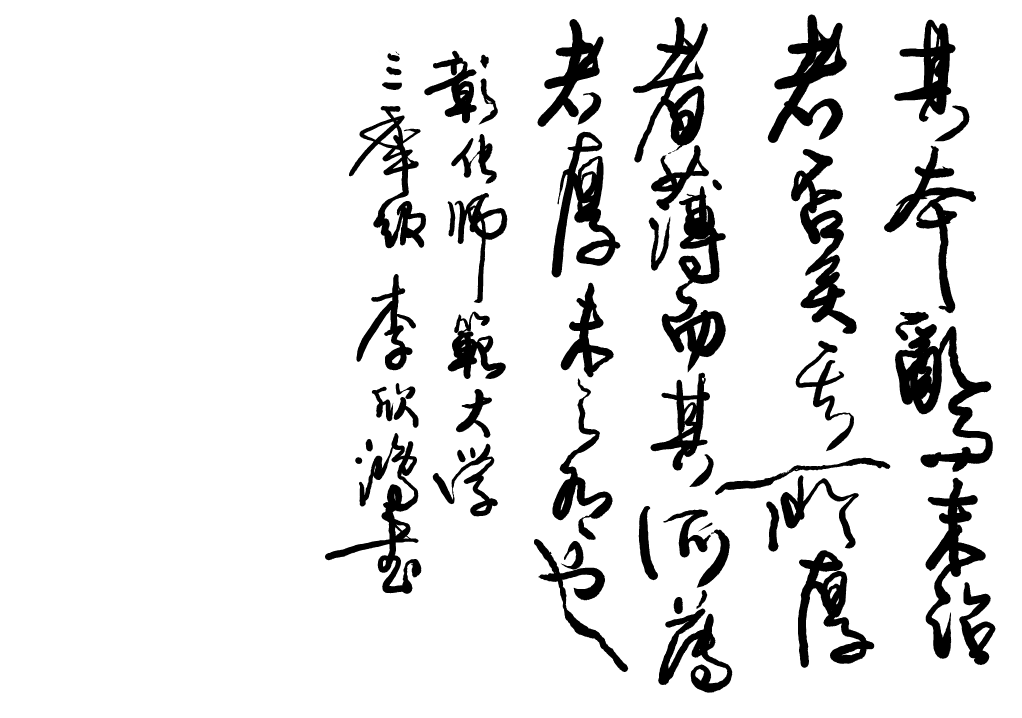 其本亂而末治
者否矣其所厚
者薄而其所薄
者厚未之有也
彰化師範大学
三年級 李欣鴻書